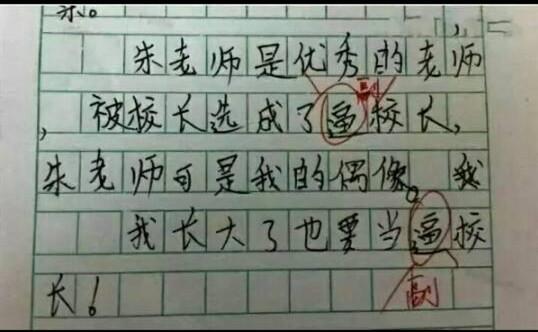 朱老师是优秀的老师
副
,被校长选成了逼校长,
朱老师可是我的偶像。我
我长大了也要当逼校
长!副